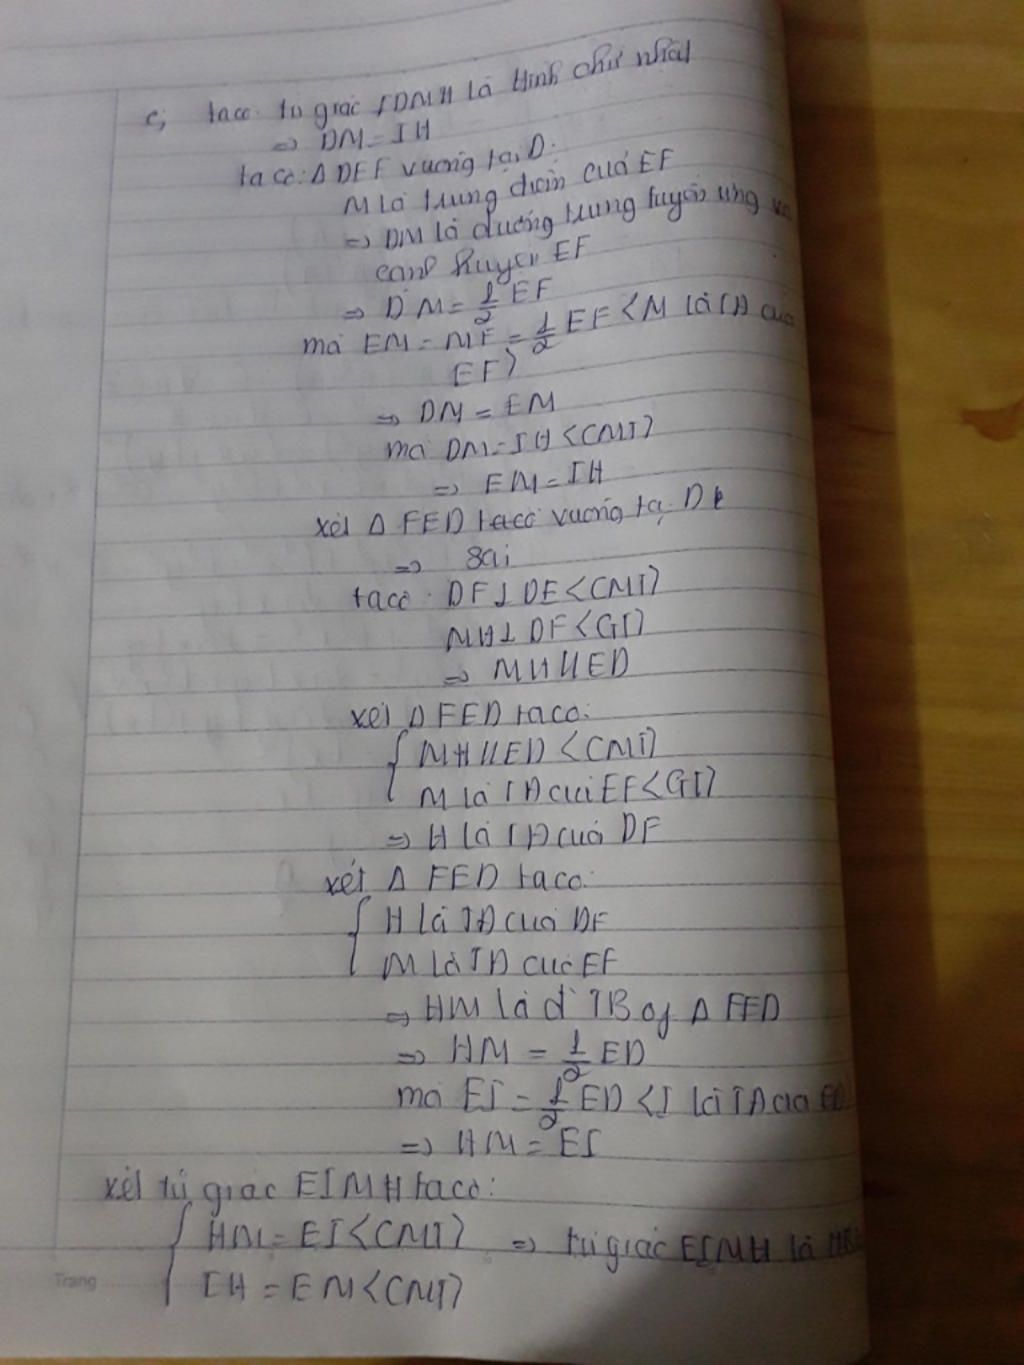 c; ta có: tứ giác IDMH là Hình chữ nhật
=> DM = IH
ta có: Δ DEF vuông tại D.
M là trung điểm của EF
=> DM là đường trung tuyến ứng
cạnh huyền EF
=> DM = 1/2 EF
mà EM = MF = 1/2 EF <M là TĐ của
EF>
=> DM = EM
mà DM = IH <CMT>
=> EM = IH
xét Δ FED ta có vuông tại D
=> sai
ta có: DF ⊥ DE <CMT>
MH ⊥ DF <GT>
=> MH // ED
xét Δ FED ta có:
{ MH // ED <CMT>
M là TĐ của EF <GT>
=> H là TĐ của DF
xét Δ FED ta có:
{ H là TĐ của DF
M là TĐ của EF
=> HM là đ' TB of Δ FED
=> HM = 1/2 ED
mà EI = 1/2 ED <I là TĐ của ED
=> HM = EI
xét tứ giác EIMH ta có:
{ HM = EI <CMT> => tứ giác EIMH là
IH = EM <CMT>
Trang